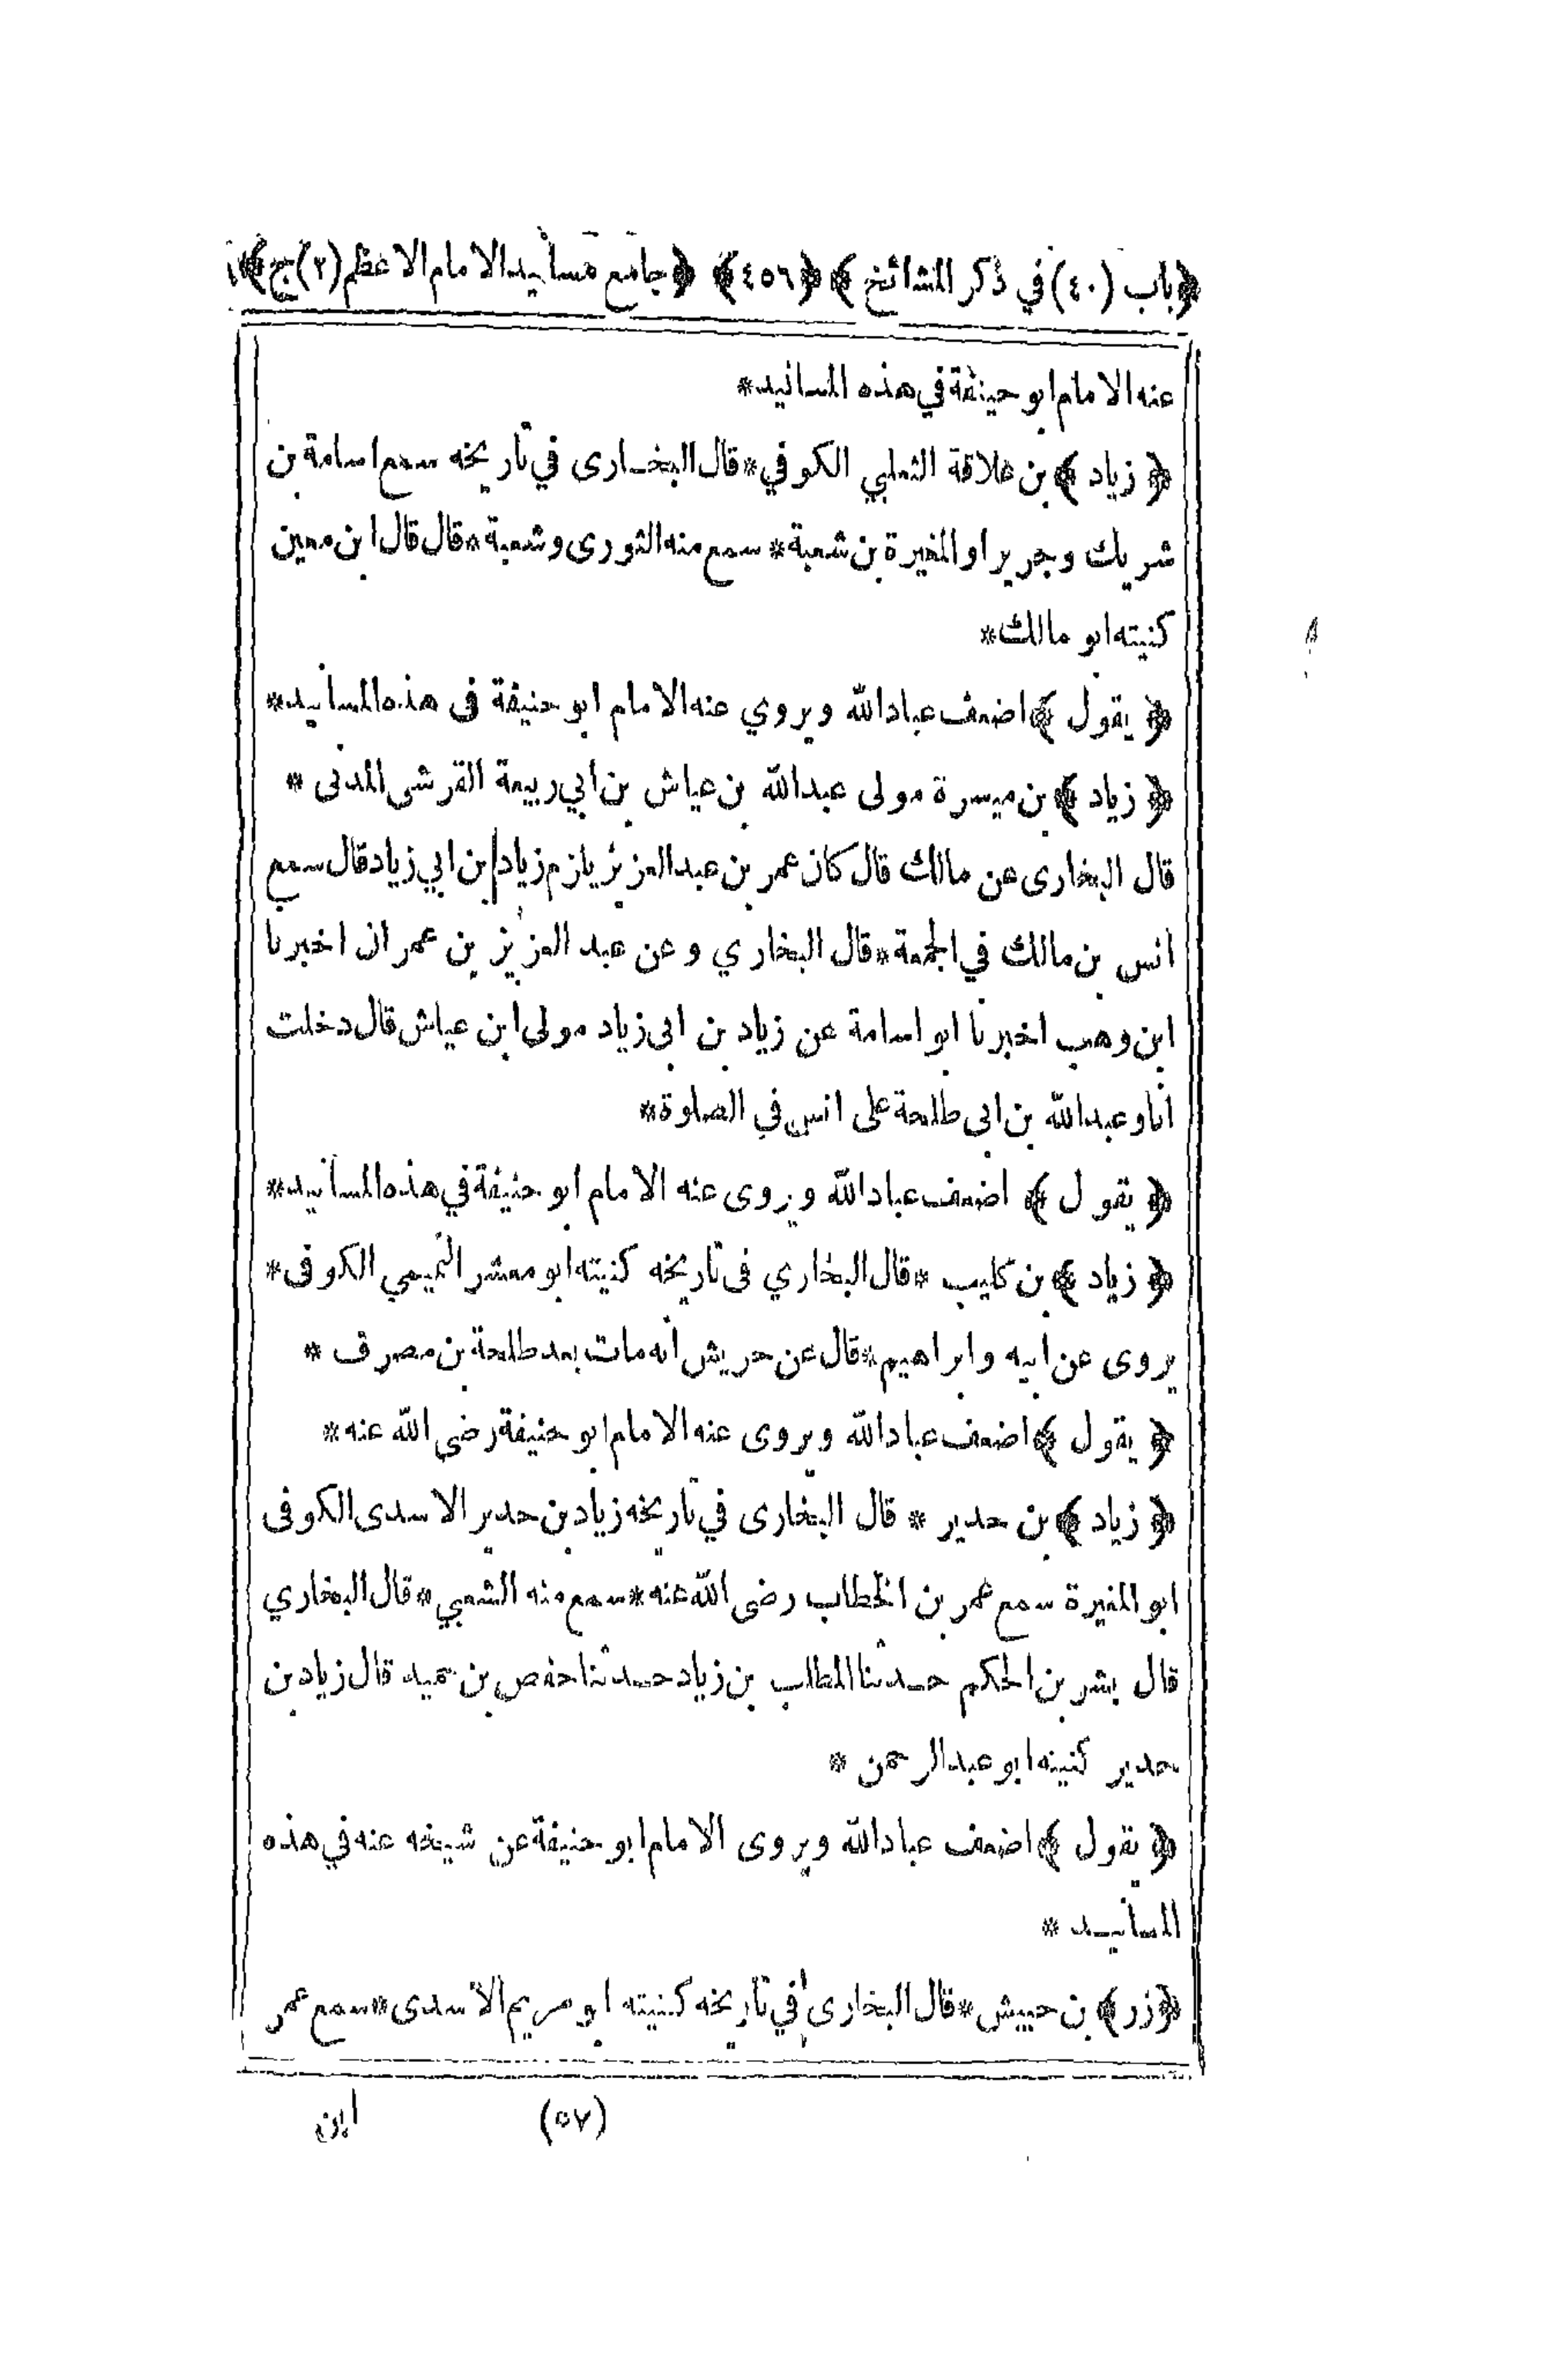 ﴿باب (٤٠) في ذكر المشائخ﴾ ﴿٤٥٦﴾ ﴿جامع مسانيد الامام الاعظم (٢) ج﴾
عنه الامام ابو حنيفة في هذه المسانيد*
﴿ زياد ﴾ بن علاقة الثعلبي الكوفي* قال البخارى في تاريخه سمع اسامة بن
شريك وجرير او المغيرة بن شعبة* سمع منه الثورى وشعبة* قال قال ابن معين
كنيته ابو مالك*
﴿ يقول ﴾ اضعف عباد الله ويروي عنه الامام ابو حنيفة فى هذه المسانيد*
﴿ زياد ﴾ بن ميسرة مولى عبد الله بن عياش بن ابي ربيعة القرشى المدنى *
قال البخارى عن مالك قال كان عمر بن عبد العزيز يلزم زياد ابن ابي زياد قال سمع
انس بن مالك في الجمعة* قال البخاري وعن عبد العزيز بن عمران اخبرنا
ابن وهب اخبرنا ابو اسامة عن زياد بن ابى زياد مولى ابن عياش قال دخلت
انا وعبد الله بن ابى طلحة على انس في الصلوة*
﴿ يقول ﴾ اضعف عباد الله ويروى عنه الامام ابو حنيفة في هذه المسانيد*
﴿ زياد ﴾ بن كليب * قال البخاري فى تاريخه كنيته ابو معشر التميمي الكوفى*
يروى عن ابيه وابراهيم* قال عن حريش انه مات بعد طلحة بن مصرف *
﴿ يقول ﴾ اضعف عباد الله ويروى عنه الامام ابو حنيفة رضى الله عنه*
﴿ زياد ﴾ بن حدير * قال البخارى في تاريخه زياد بن حدير الاسدى الكوفى
ابو المغيرة سمع عمر بن الخطاب رضى الله عنه* سمع منه الشعبي* قال البخاري
قال بشر بن الحكم حدثنا المطلب بن زياد حدثنا حفص بن حميد قال زياد بن
حدير كنيته ابو عبد الرحمن *
﴿ يقول ﴾ اضعف عباد الله ويروى الامام ابو حنيفة عن شيخه عنه في هذه
المسانيد *
﴿زر﴾ بن حبيش* قال البخارى في تاريخه كنيته ابو مريم الاسدى* سمع عمر
(٥٧) ابن